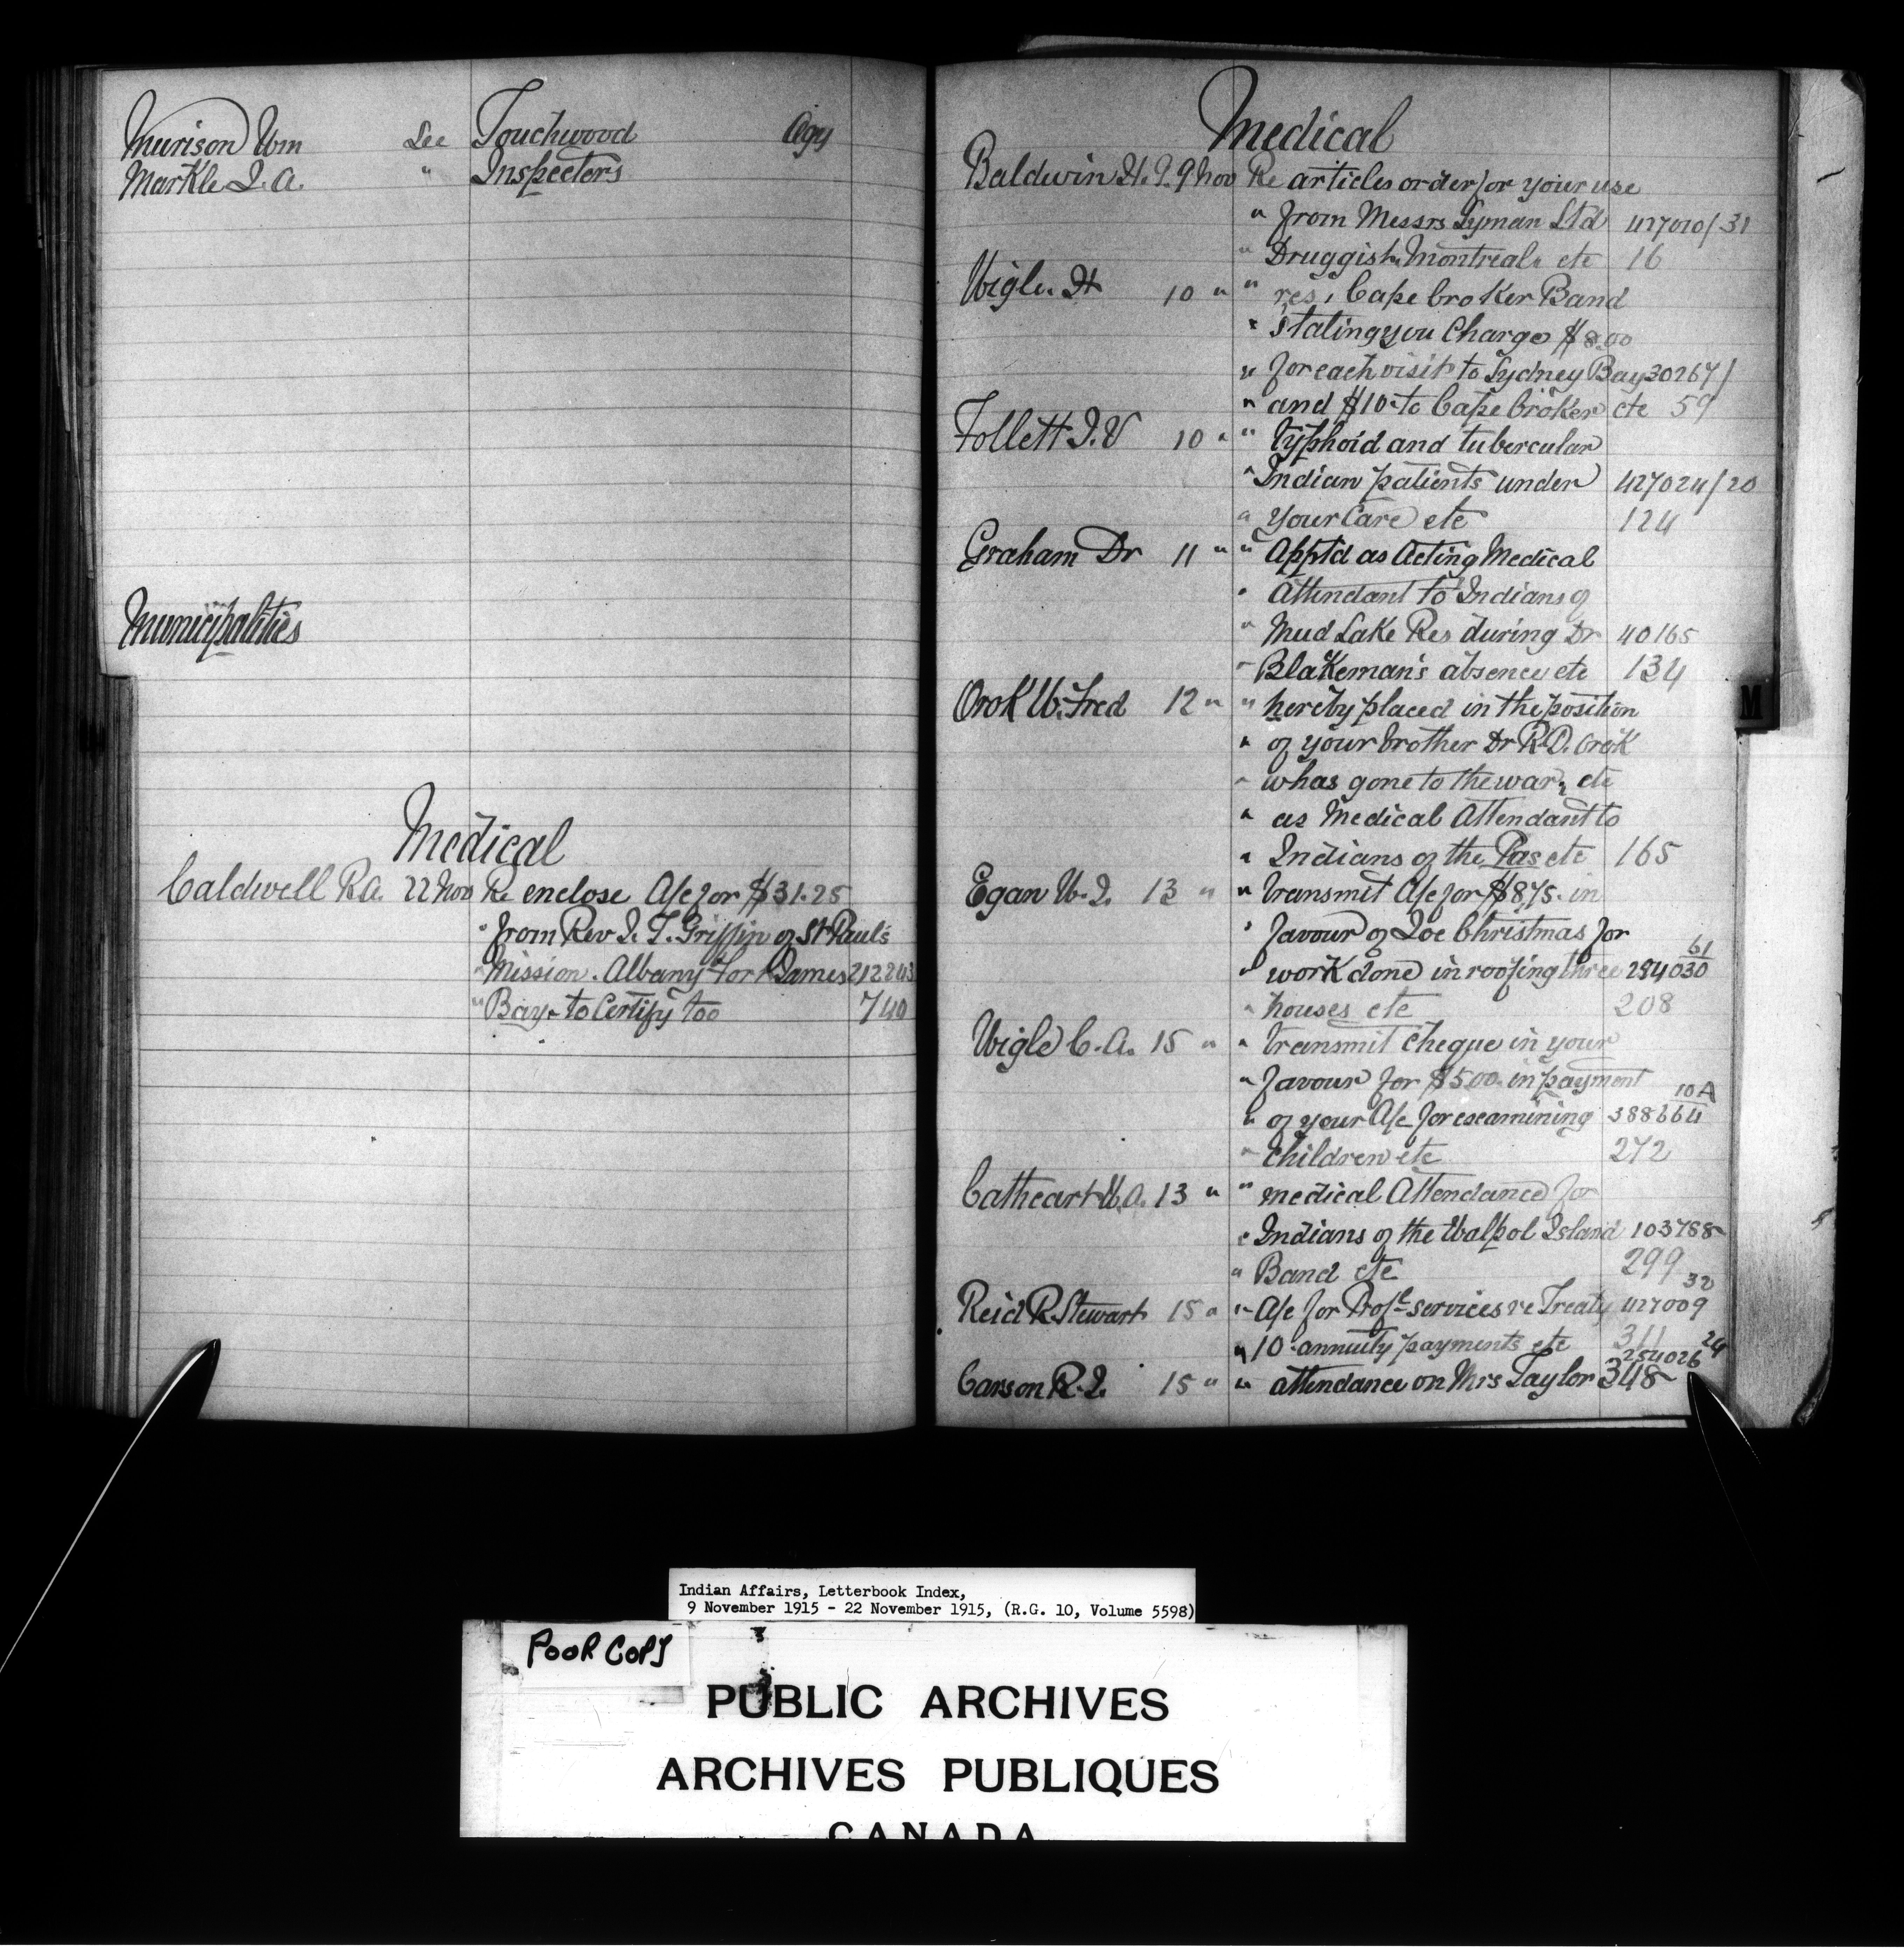 Murison Wm See Touchwood Agy
Markle J. A. " Inspectors
Municipalities
Medical
Caldwell R.A. 22 Nov Re enclose A/c for $31.25
" from Rev J. T. Griffin of St Paul's
" Mission. Albany Fort James 212243
" Bay - to Certify too 740
Medical
Baldwin H. J. 9 Nov Re articles order for your use
" from Messrs Lyman Ltd 427010/31
" Druggist Montreal etc 16
Wigle H 10 " " res, Cape Croker Band
" Stating you Charge $8.00
" for each visit to Sydney Bay 30267/
" and $10 - to Cape Croker etc 59
Follett J. V 10 " " Typhoid and tubercular
" Indian patients under 427024/20
" Your Care etc 124
Graham Dr 11 " " Appt'd as Acting Medical
" Attendant to Indians of
" Mud Lake Res during Dr 40165
" Blakeman's absence etc 134
Orok W. Fred 12 " " hereby placed in the position
" of your brother Dr R.D. Orok
" whas gone to the war, etc
" as Medical Attendant to
" Indians of the Pas etc 165
Egan W. J. 13 " " transmit A/c for $8.75. in
" favour of Joe Christmas for
61
" work done in roofing three 284030
" houses etc 208
Wigle C. A. 15 " " transmit Cheque in your
" favour for $5.00. in payment
10A
" of your A/c for examining 388664
" Children etc 272
Cathcart W.A. 13 " " medical Attendance for
" Indians of the Walpol Island 103788
" Band etc 299
32
Reid R. Stewart 15 " " A/c for Prof'l services re Treaty 427009
" 10 - annuity payments etc 311
254026 24
Carson R. J. 15 " " attendance on Mrs Taylor 348
M
Indian Affairs, Letterbook Index,
9 November 1915 - 22 November 1915, (R.G. 10, Volume 5598)
POOR COPY
PUBLIC ARCHIVES
ARCHIVES PUBLIQUES
CANADA